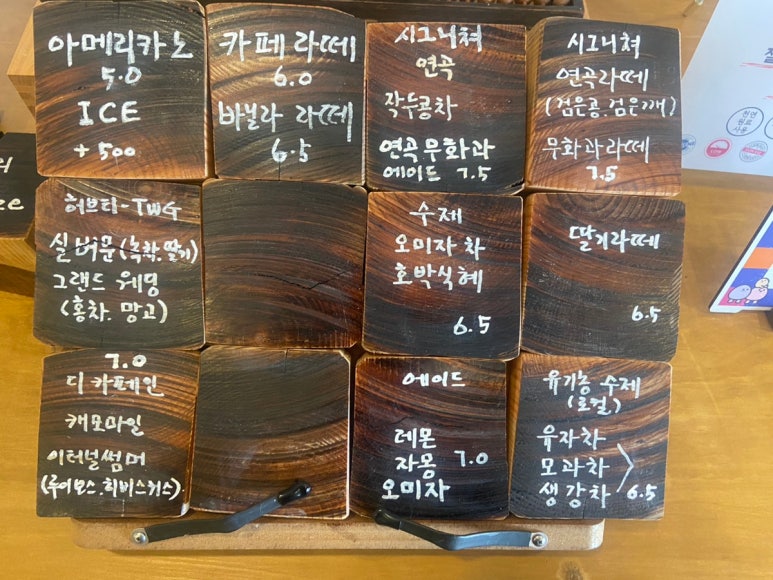 아메리카노
5.0
ICE
+500
카페라떼
6.0
바닐라 라떼
6.5
시그니쳐
연곡
작두콩차
연곡무화과
에이드 7.5
시그니쳐
연곡라떼
(검은콩.검은깨)
무화과라떼
7.5
허브티-TWG
실버문(녹차.딸기)
그랜드 웨딩
(홍차.망고)
수제
오미자차
호박식혜
6.5
딸기라떼
6.5
7.0
디카페인
캐모마일
이터널썸머
(루이보스.히비스커스)
에이드
레몬
자몽 7.0
오미자
유기농 수제
(로컬)
유자차
모과차
생강차 6.5
천연
원료
사용